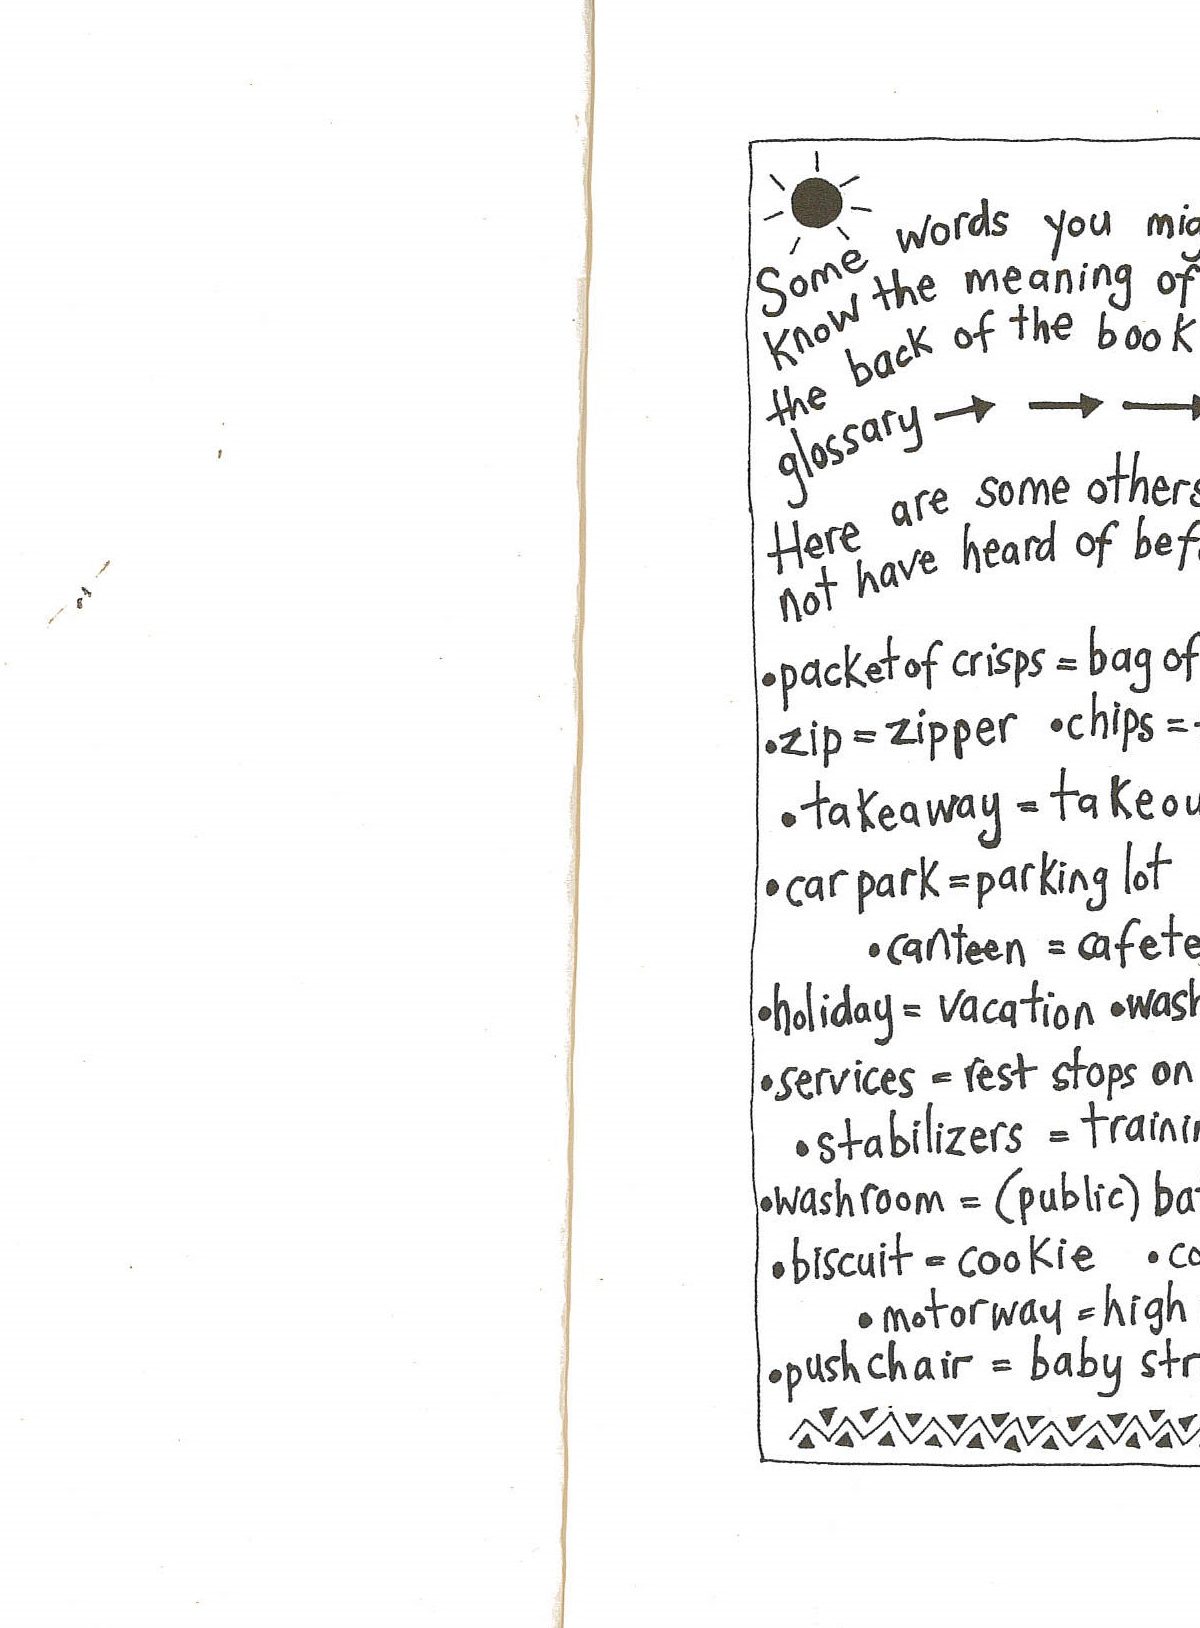 Some words you mig
know the meaning of
the back of the book
glossary
Here are some others
not have heard of befo
•packet of crisps = bag of
•zip = zipper •chips =
•takeaway = takeou
•car park = parking lot
•canteen = cafete
•holiday = vacation •wash
•services = rest stops on
•stabilizers = trainin
•washroom = (public) bat
•biscuit = cookie •co
•motorway = high
•pushchair = baby str